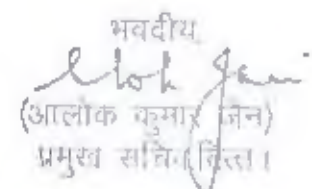 भवदीय,
Alok Jain
(आलोक कुमार जैन)
प्रमुख सचिव (वित्त)।